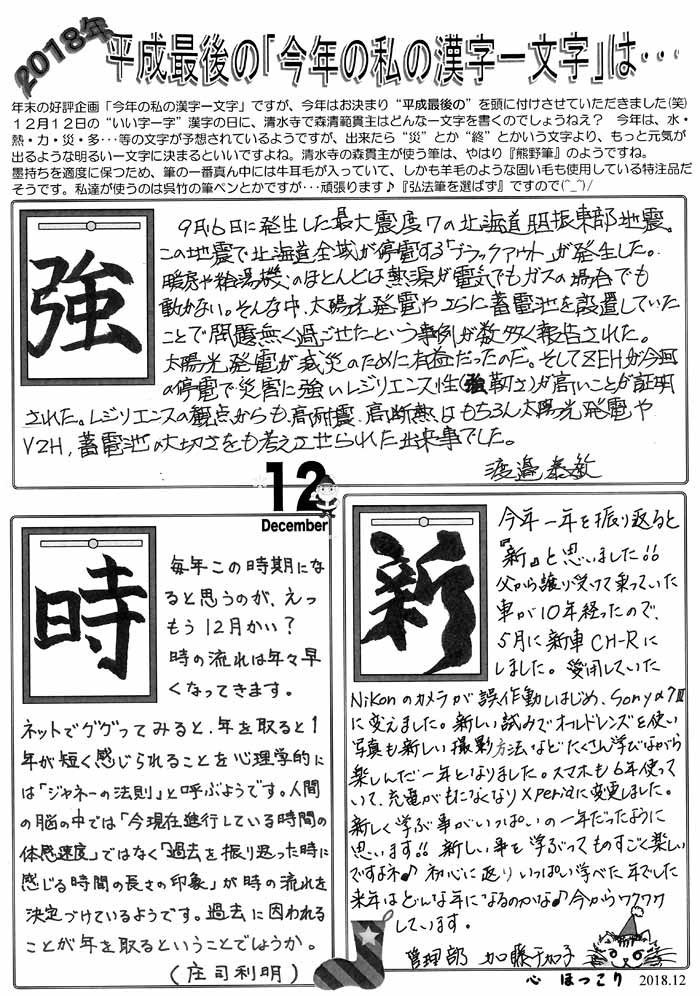 2018年
平成最後の「今年の私の漢字一文字」は・・・
年末の好評企画「今年の私の漢字一文字」ですが、今年はお決まり“平成最後の”を頭に付けさせていただきました(笑)
12月12日の“いい字一字”漢字の日に、清水寺で森清範貫主はどんな一文字を書くのでしょうねえ？ 今年は、水・
熱・力・災・多・・・等の文字が予想されているようですが、出来たら“災”とか“終”とかいう文字より、もっと元気が
出るような明るい一文字に決まるといいですよね。清水寺の森貫主が使う筆は、やはり『熊野筆』のようですね。
墨持ちを適度に保つため、筆の一番真ん中には牛耳毛が入っていて、しかも羊毛のような固い毛も使用している特注品だ
そうです。私達が使うのは呉竹の筆ペンとかですが・・・頑張ります♪『弘法筆を選ばず』ですので(^_^)/
強
9月6日に発生した最大震度7の北海道胆振東部地震。
この地震で北海道全域が停電する「ブラックアウト」が発生した。
暖房や給湯機のほとんどは熱源が電気でもガスの場合でも
動かない。そんな中、太陽光発電やさらに蓄電池を設置していた
ことで問題無く過ごせたという事例が数多く報告された。
太陽光発電が減災のために有益だったのだ。そしてZEHが今回
の停電で災害に強いレジリエンス性(強靭さ)が高いことが証明
された。レジリエンスの観点からも高耐震、高断熱はもちろん太陽光発電や
V2H、蓄電池の大切さをも考えさせられた出来事でした。
渡邉泰敏
12
December
時
毎年この時期にな
ると思うのが、えっ
もう12月かい？
時の流れは年々早
くなってきます。
ネットでググってみると、年を取ると1
年が短く感じられることを心理学的に
は「ジャネーの法則」と呼ぶようです。人間
の脳の中では「今現在進行している時間の
体感速度」ではなく「過去を振り返った時に
感じる時間の長さの印象」が時の流れを
決定づけているようです。過去に囚われる
ことが年を取るということでしょうか。
(庄司利明)
新
今年一年を振り返ると
『新』と思いました!!
父から譲り受けて乗っていた
車が10年経ったので、
5月に新車CH-Rに
しました。愛用していた
Nikonのカメラが誤作動しはじめ、Sonyα7Ⅲ
に変えました。新しい試みでオールドレンズを使い
写真も新しい撮影方法などたくさん学びながら
楽しんだ一年となりました。スマホも6年使って
いて、充電がもたなくなりXperiaに変更しました。
新しく学ぶ事がいっぱいの一年だったように
思います!! 新しい事を学ぶってものすごく楽しい
ですよネ♪ 初心に返りいっぱい学べた年でした
来年はどんな年になるのかな♪今からワクワク
しています。
管理部 加藤
心 ほっこり 2018.12